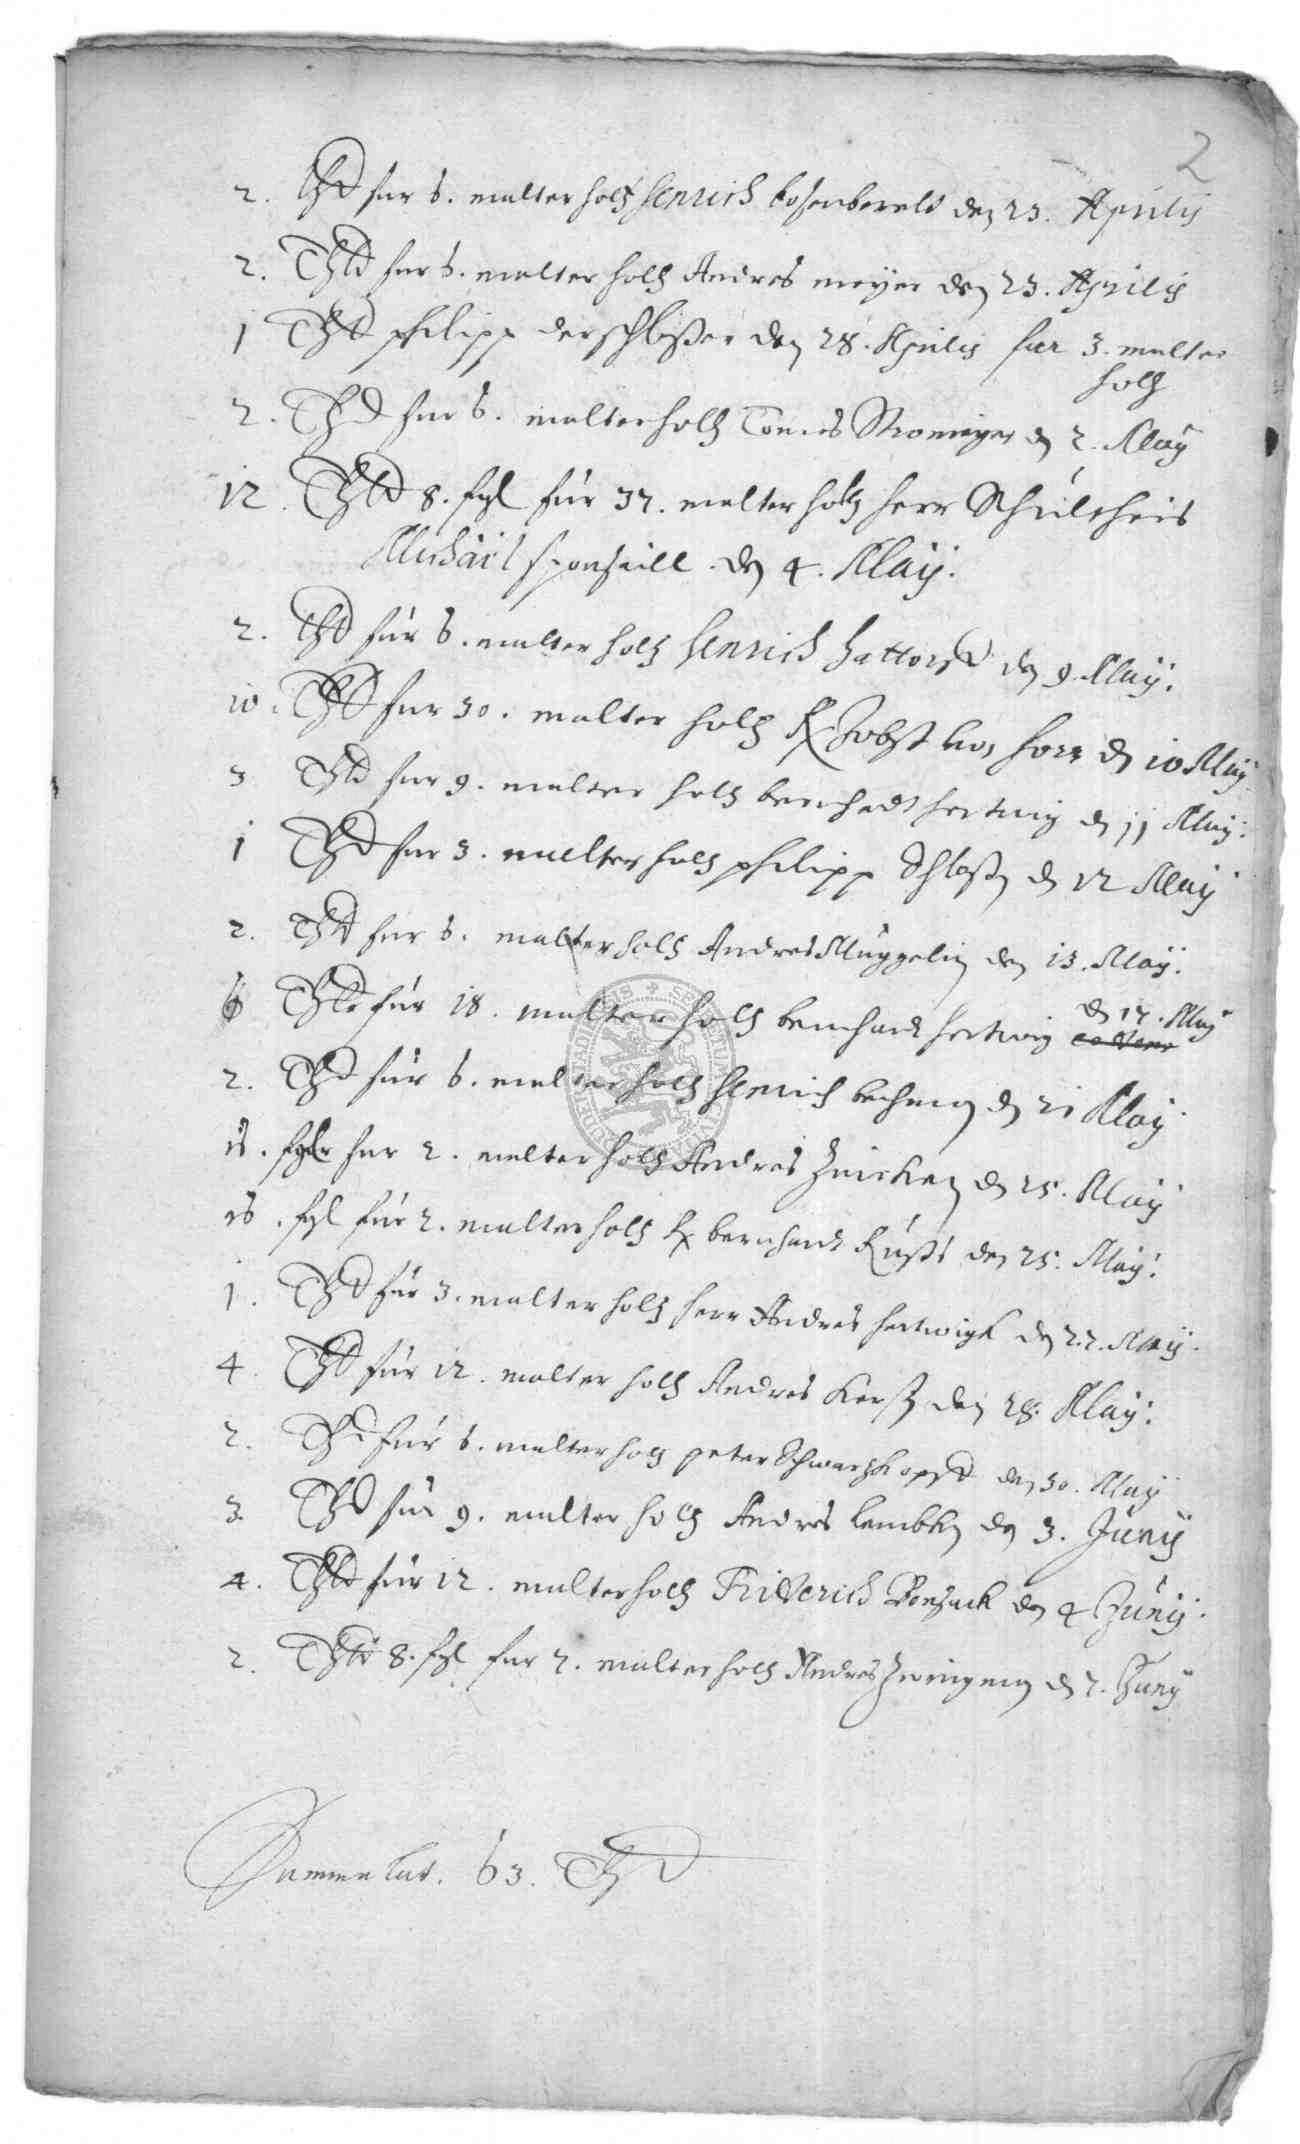 2
2. Thlr fur 6. malter holtz Henrich den 23. Aprilis
2. Thlr fur 6. malter holtz Andres meyer den 23. Aprilis
1 Thlr philipp der schlosser den 28. Aprilis fur 3. malter
holtz
2. Thlr fur 6. malter holtz den 2. Maij
12. Thlr 8. sgl für 37. malter holtz herr Schultheis
Michäel den 4. Maij.
2. Thlr für 6. malter holtz Henrich Hattorff den 9. Maij.
10. Thlr fur 30. malter holtz H Jobst von den 10 Maij
3 Thlr fur 9. malter holtz bernhadt hertwig den 11 Maij.
1 Thlr fur 3. malter holtz philipp den 12 Maij
2. Thlr fur 6. malter holtz Andres den 13. Maij.
6 Thlr für 18. malter holtz bernhardt hertwig den 17. Maij
2. Thlr für 6. malter holtz Henrich den 21 Maij
16. sgl fur 2. malter holtz Andres den 25. Maij
16. sgl für 2. malter holtz H bernhardt den 25. Maij.
1. Thlr für 3. malter holtz herr Andres hertwigk den 27. Maij.
4. Thlr für 12. malter holtz Andres den 28. Maij.
2. Thlr für 6. malter holtz peter Schwartzkopff den 30. Maij
3. Thlr für 9. malter holtz Andres den 3. Junij
4. Thlr für 12. malter holtz Friderich Bonsack den 4 Junij.
2. Thlr 8. sgl fur 7. malter holtz Andres den 7. Junij
Summa lat. 63. Thlr